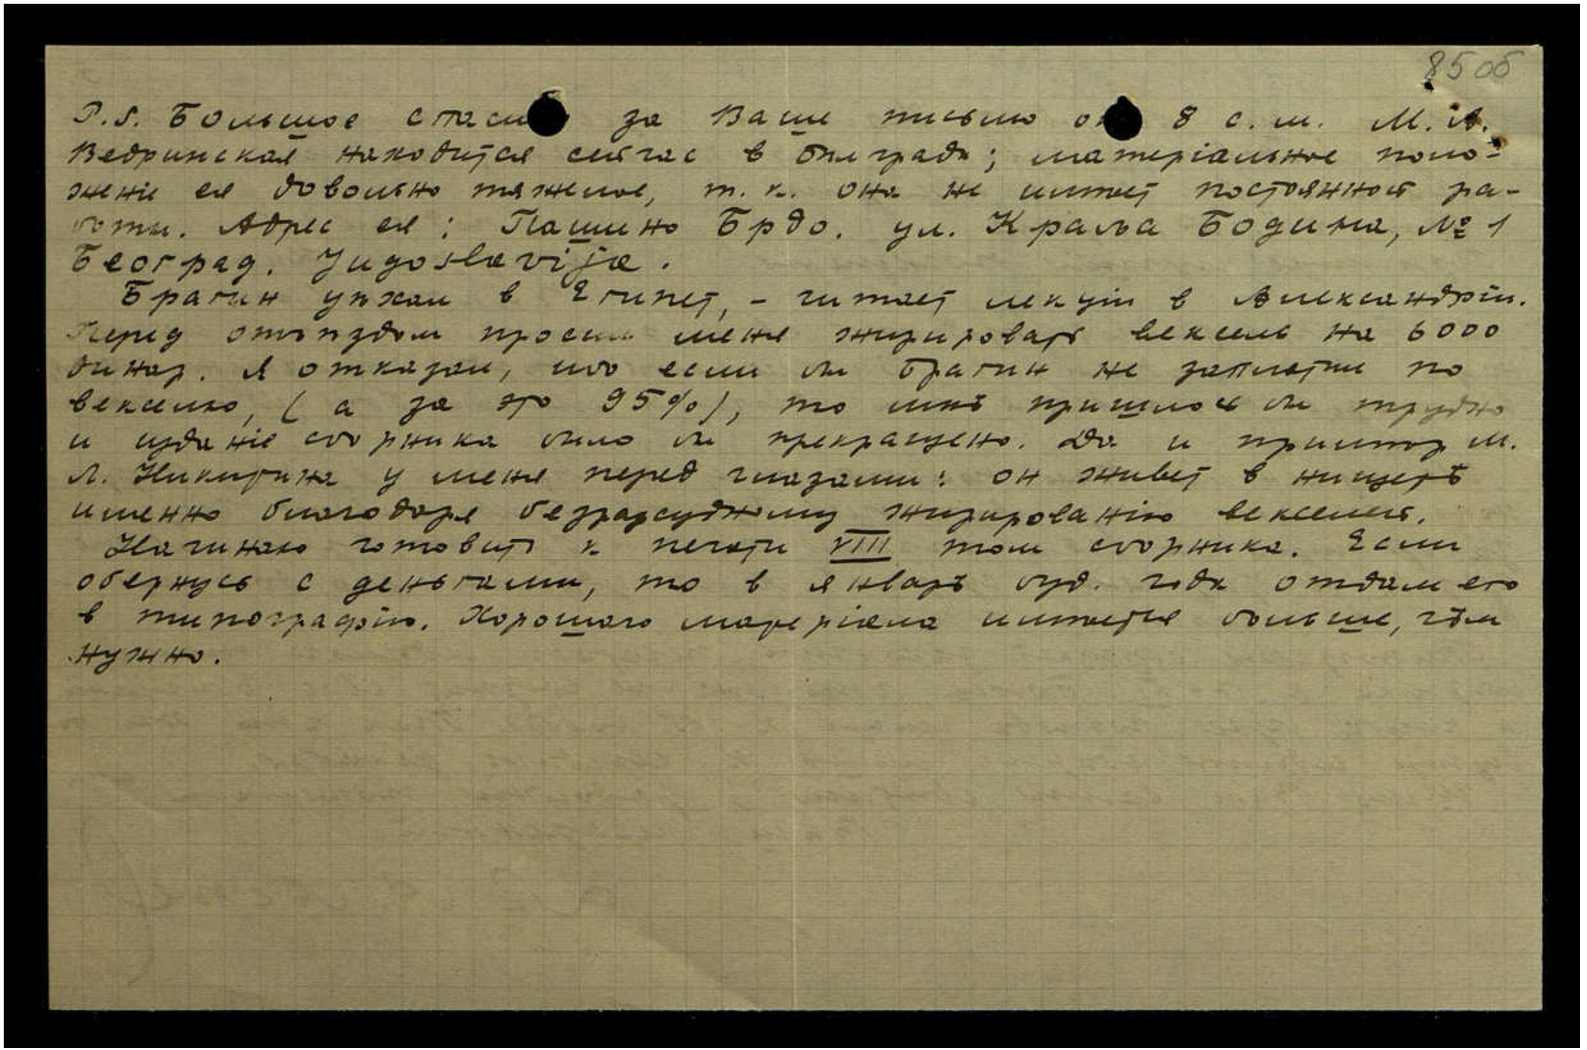 85 об
P.S. Большое спасиб за Ваше письмо от 8 с.м. М.А.
Ведринская находится сейчас в Бѣлградѣ; матеріальное поло-
женіе ея довольно тяжелое, т.к. она не имѣет постоянной ра-
боты. Адрес ея: Пашино Брдо. ул. Краља Бодина, № 1
Београд. Jugoslavija.
Брагин уѣхал в Египет, - читает лекціи в Александріи.
Перед отъѣздом просил меня жирировать вексель на 6000
динар. Я отказал, ибо если бы Брагин не заплатил по
векселю, (а за это 95%), то мнѣ пришлось бы трудно
и изданіе сборника было бы прекращено. Да и примѣр М.
Л. Никитина у меня перед глазами: он живет в нищетѣ
именно благодаря безразсудному жированію векселей.
Начинаю готовить к печати VIII том сборника. Если
обернусь с деньгами, то в январѣ буд. года отдам его
в типографію. Хорошаго матеріала имѣется больше, чѣм
нужно.